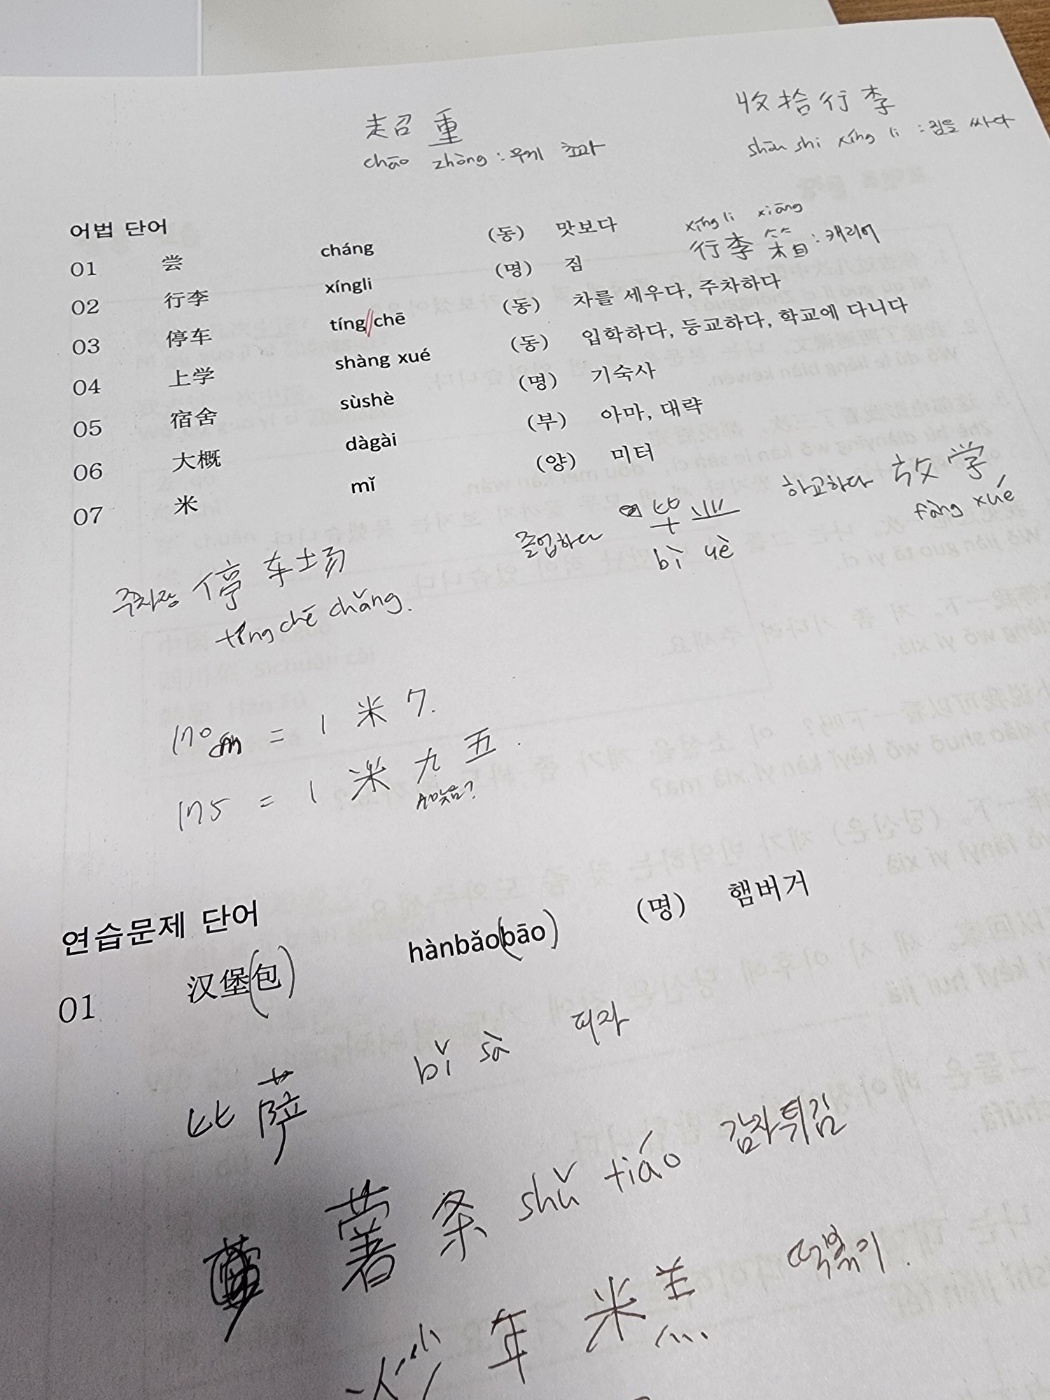 超重
chāo zhòng : 무게 초과
收拾行李
shōu shi xíng li : 짐을 싸다
어법 단어
xíng li xiāng
行李箱 : 캐리어
01 尝 cháng (동) 맛보다
02 行李 xíngli (명) 짐
03 停车 tíng//chē (동) 차를 세우다, 주차하다
04 上学 shàng xué (동) 입학하다, 등교하다, 학교에 다니다
05 宿舍 sùshè (명) 기숙사
06 大概 dàgài (부) 아마, 대략
07 米 mǐ (양) 미터
하교하다 放学
fàng xué
졸업하다 毕业
bì yè
주차장 停车场
tíng chē chǎng.
170cm = 1 米 7.
175 = 1 米 九 五.
연습문제 단어
01 汉堡(包) hànbǎo(bāo) (명) 햄버거
比萨 bǐ sà 피자
薯条 shǔ tiáo 감자튀김
炒年米羔 떡볶이.